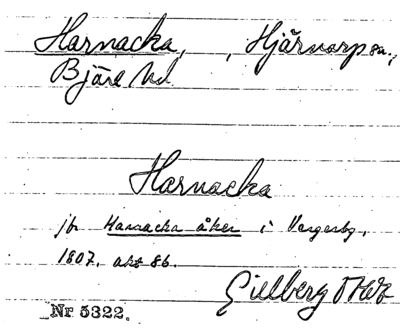 Harnacka, , Hjärnarp sn.,
Bjäre hd.
Harnacka
jfr Harnacka åker i Vegeby,
1807. akt 86.
Gillberg
Nr 5322.